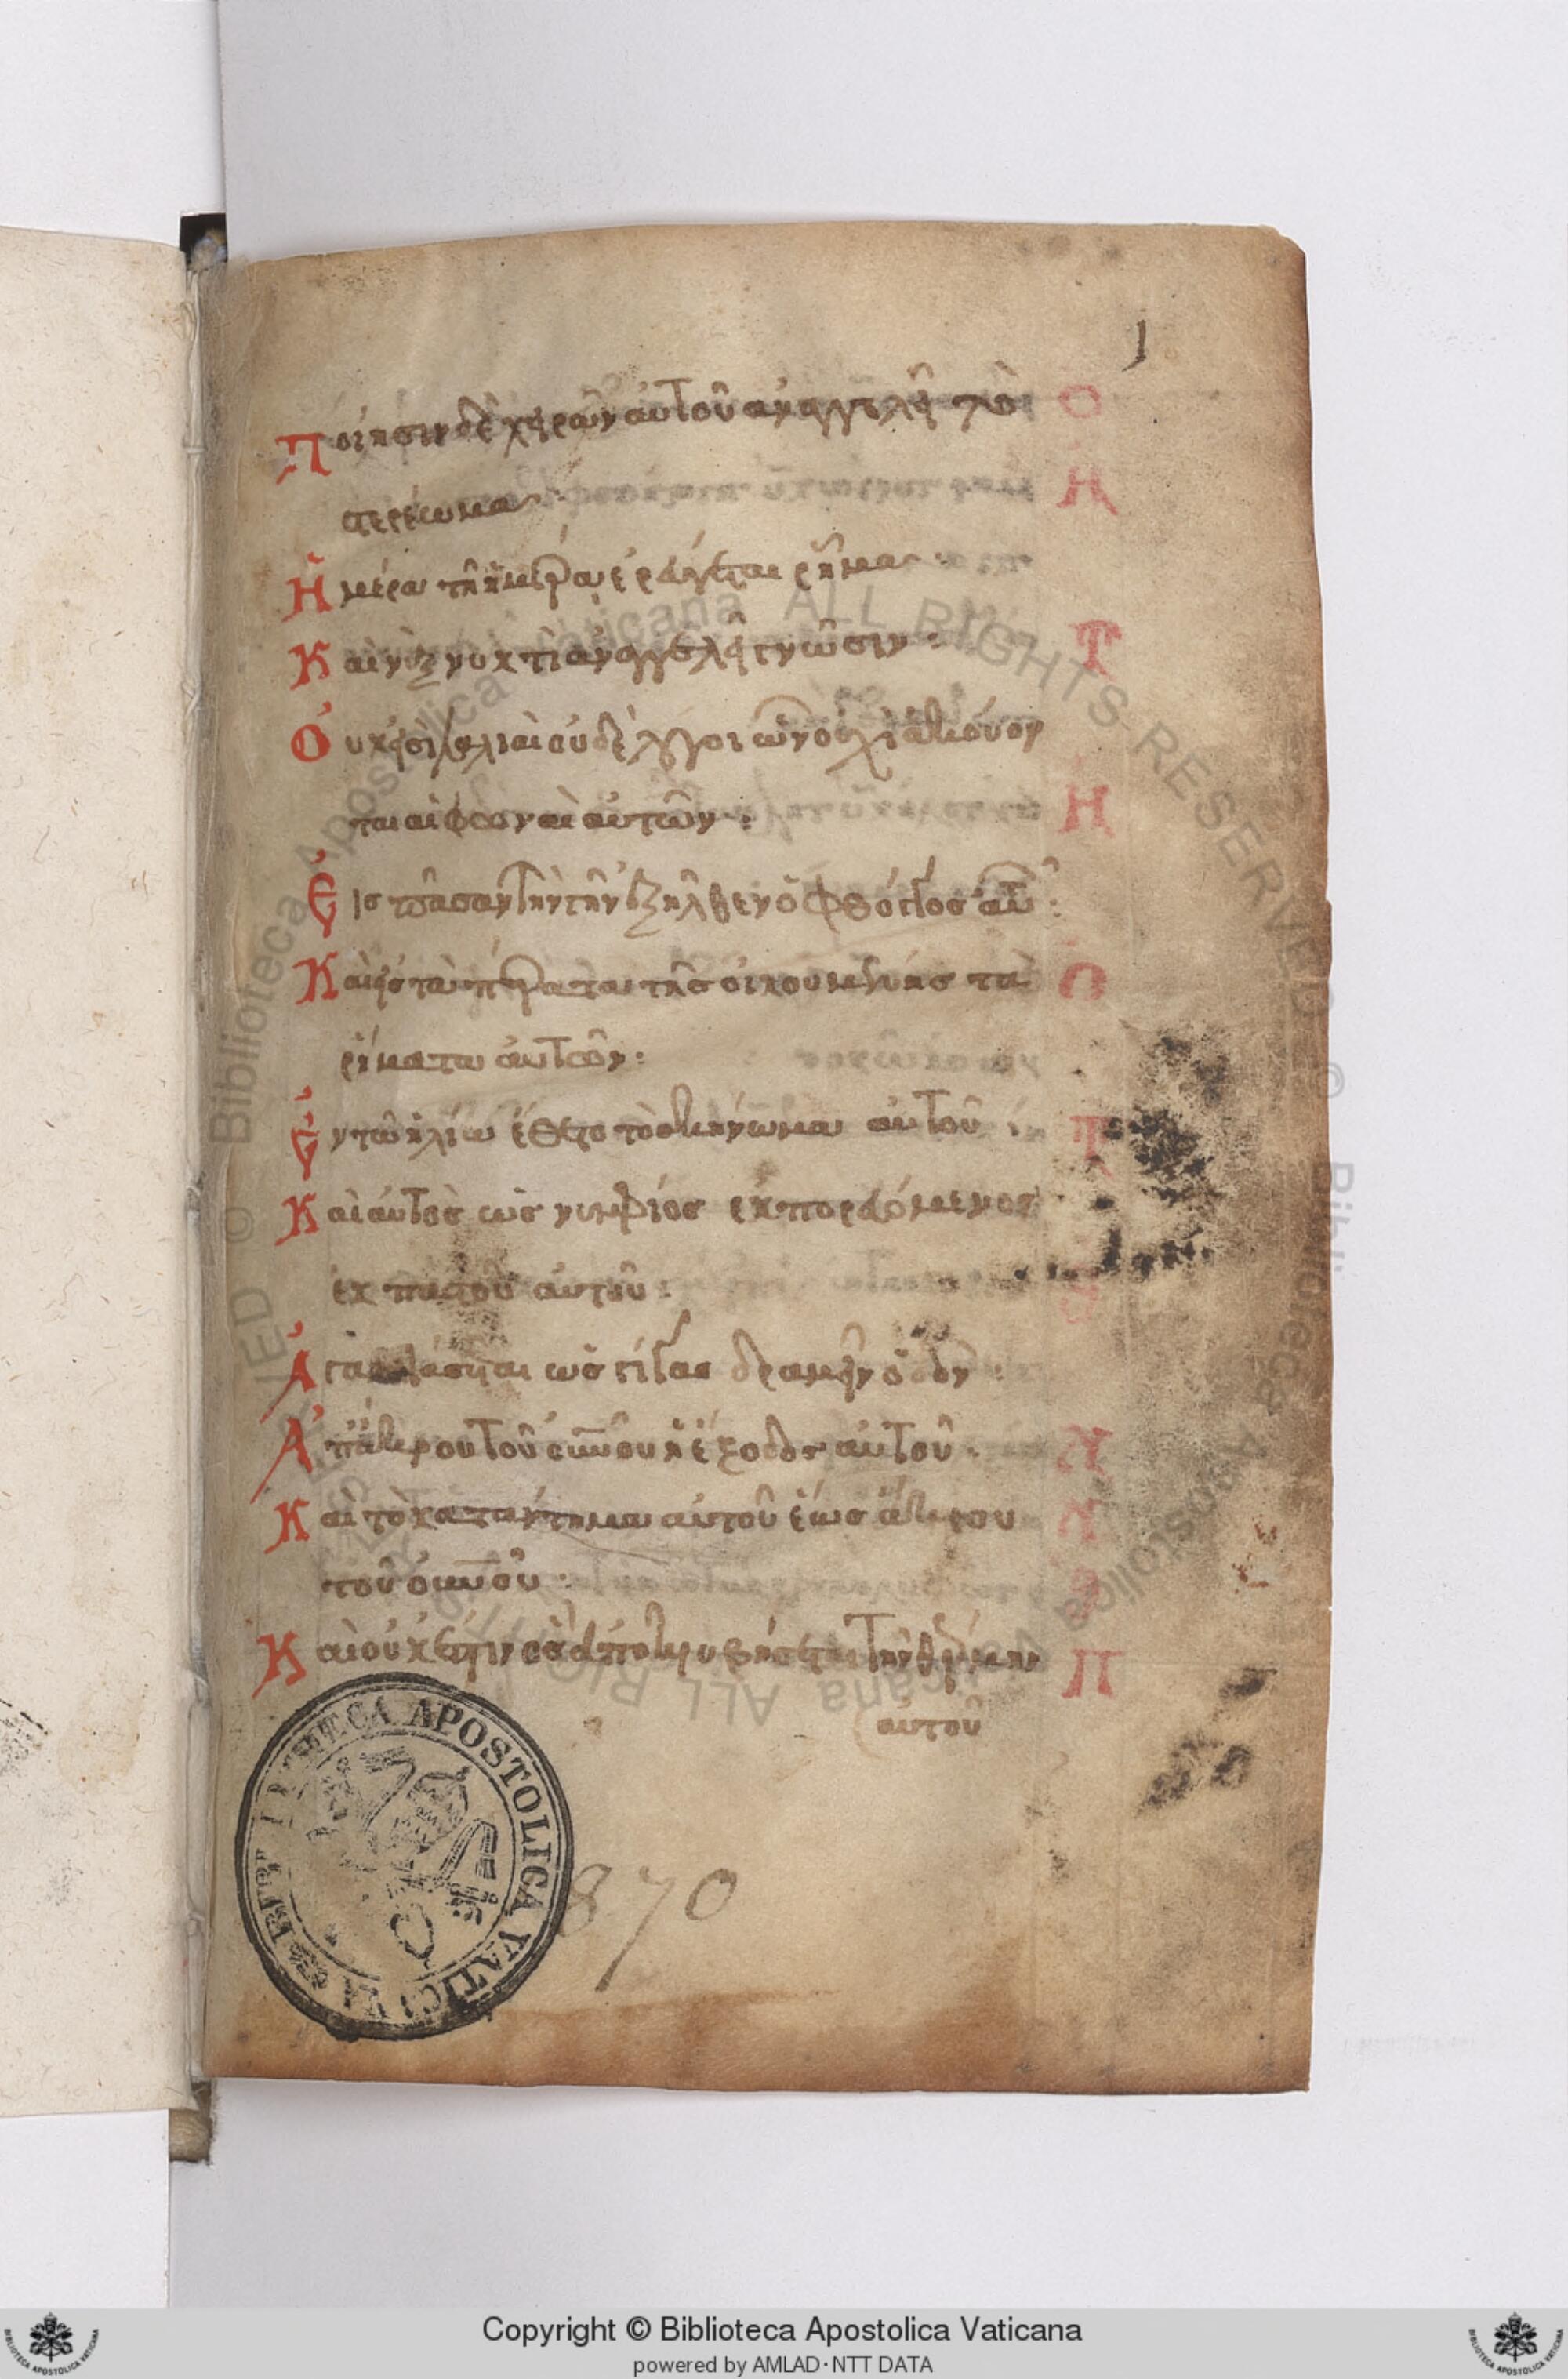 1
Ποίησιν δὲ χειρῶν αὐτοῦ ἀναγγέλει τὸ
στερέωμα:
Ἡμέρα τῆ ἡμέρα ἐρεύγεται ρῆμα:
Καὶ νὺξ νυκτὶ ἀναγγέλει γνῶσιν:
Οὐκ εἰσὶ λαλιαὶ οὐδὲ λόγοι ὧν οὐχὶ ἀκούον
ται αἱ φωναὶ αὐτῶν:
Εἰς πᾶσαν τὴν γῆν ἐξῆλθεν ὁ φθόγγος αὐτ:
Καὶ εἰς τὰ πέρατα τῆς οἰκουμένης τὰ
ρίματα αὐτῶν:
Ἐν τῶ ἡλίω ἔθετο τὸ σκήνωμα αὐτοῦ:
Καὶ αὐτὸς ὡς νυμφίος ἐκπορευόμενος
ἐκ παστοῦ αὐτοῦ:
Ἀγαλλιάσεται ὡς γίγας δραμεῖν ὁδὸν:
Ἀπ' ἄκρου τοῦ οὐνοῦ ἡ ἔξοδος αὐτοῦ:
Καὶ τὸ κατάντημα αὐτοῦ ἕως ἄκρου
τοῦ οὐνοῦ:
Καὶ οὐκ ἔστιν ὃς ἀποκρυβήσεται τὴν θέρμην
αὐτοῦ
BIBLIOTECA APOSTOLICA VATICANA
870
Copyright © Biblioteca Apostolica Vaticana
powered by AMLAD·NTT DATA